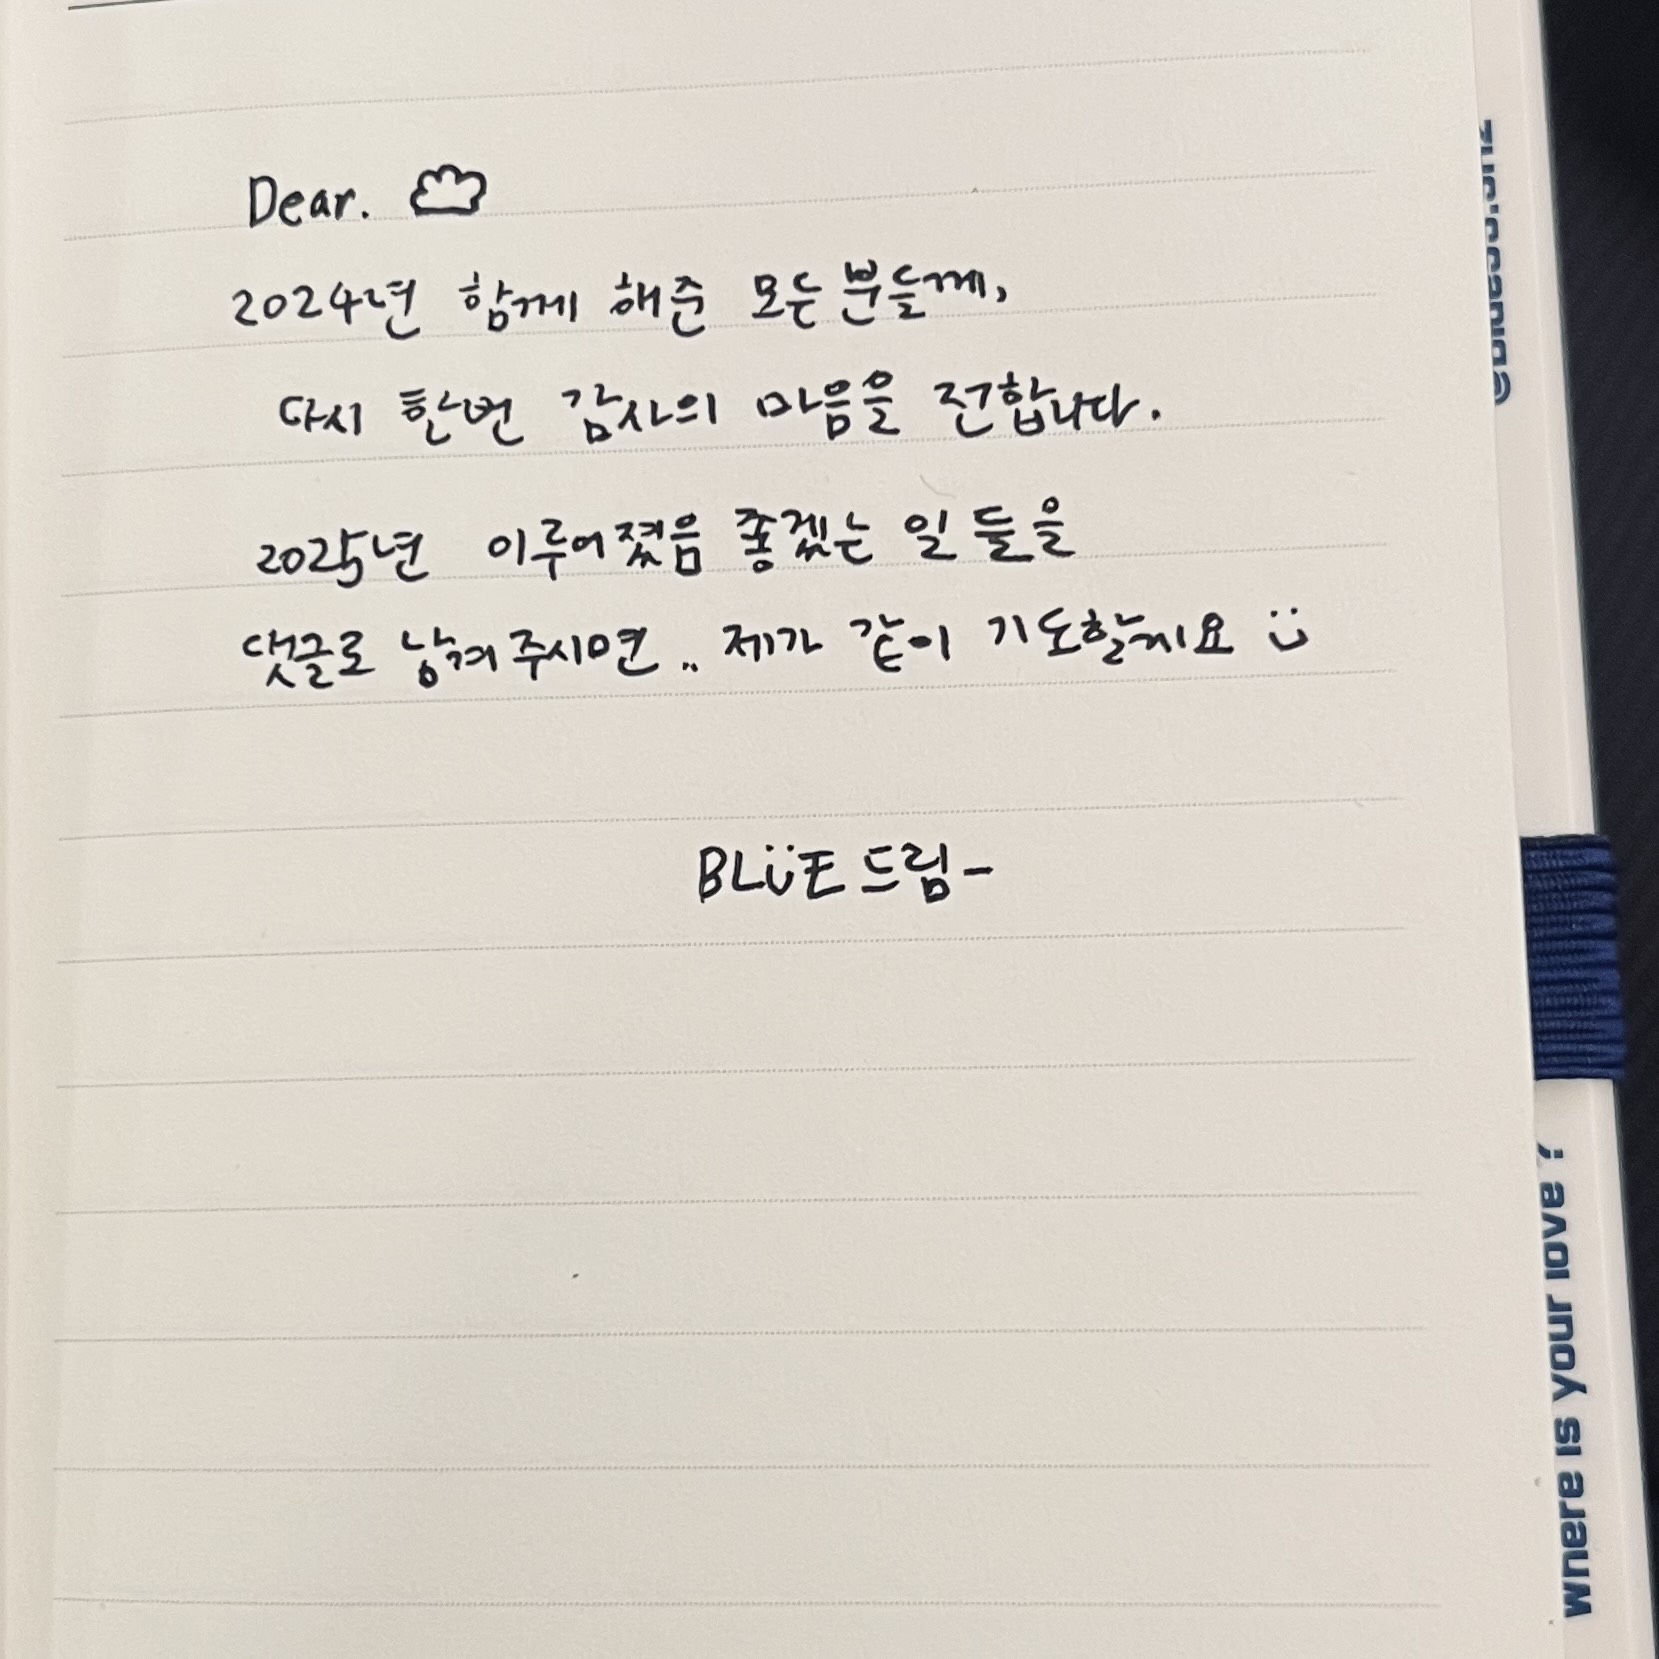 Dear.
2024년 함께 해준 모든분들께,
다시 한번 감사의 마음을 전합니다.
2025년 이루어졌음 좋겠는 일들을
댓글로 남겨주시면.. 제가 같이 기도할게요
BLÜE 드림-
where is your love ?